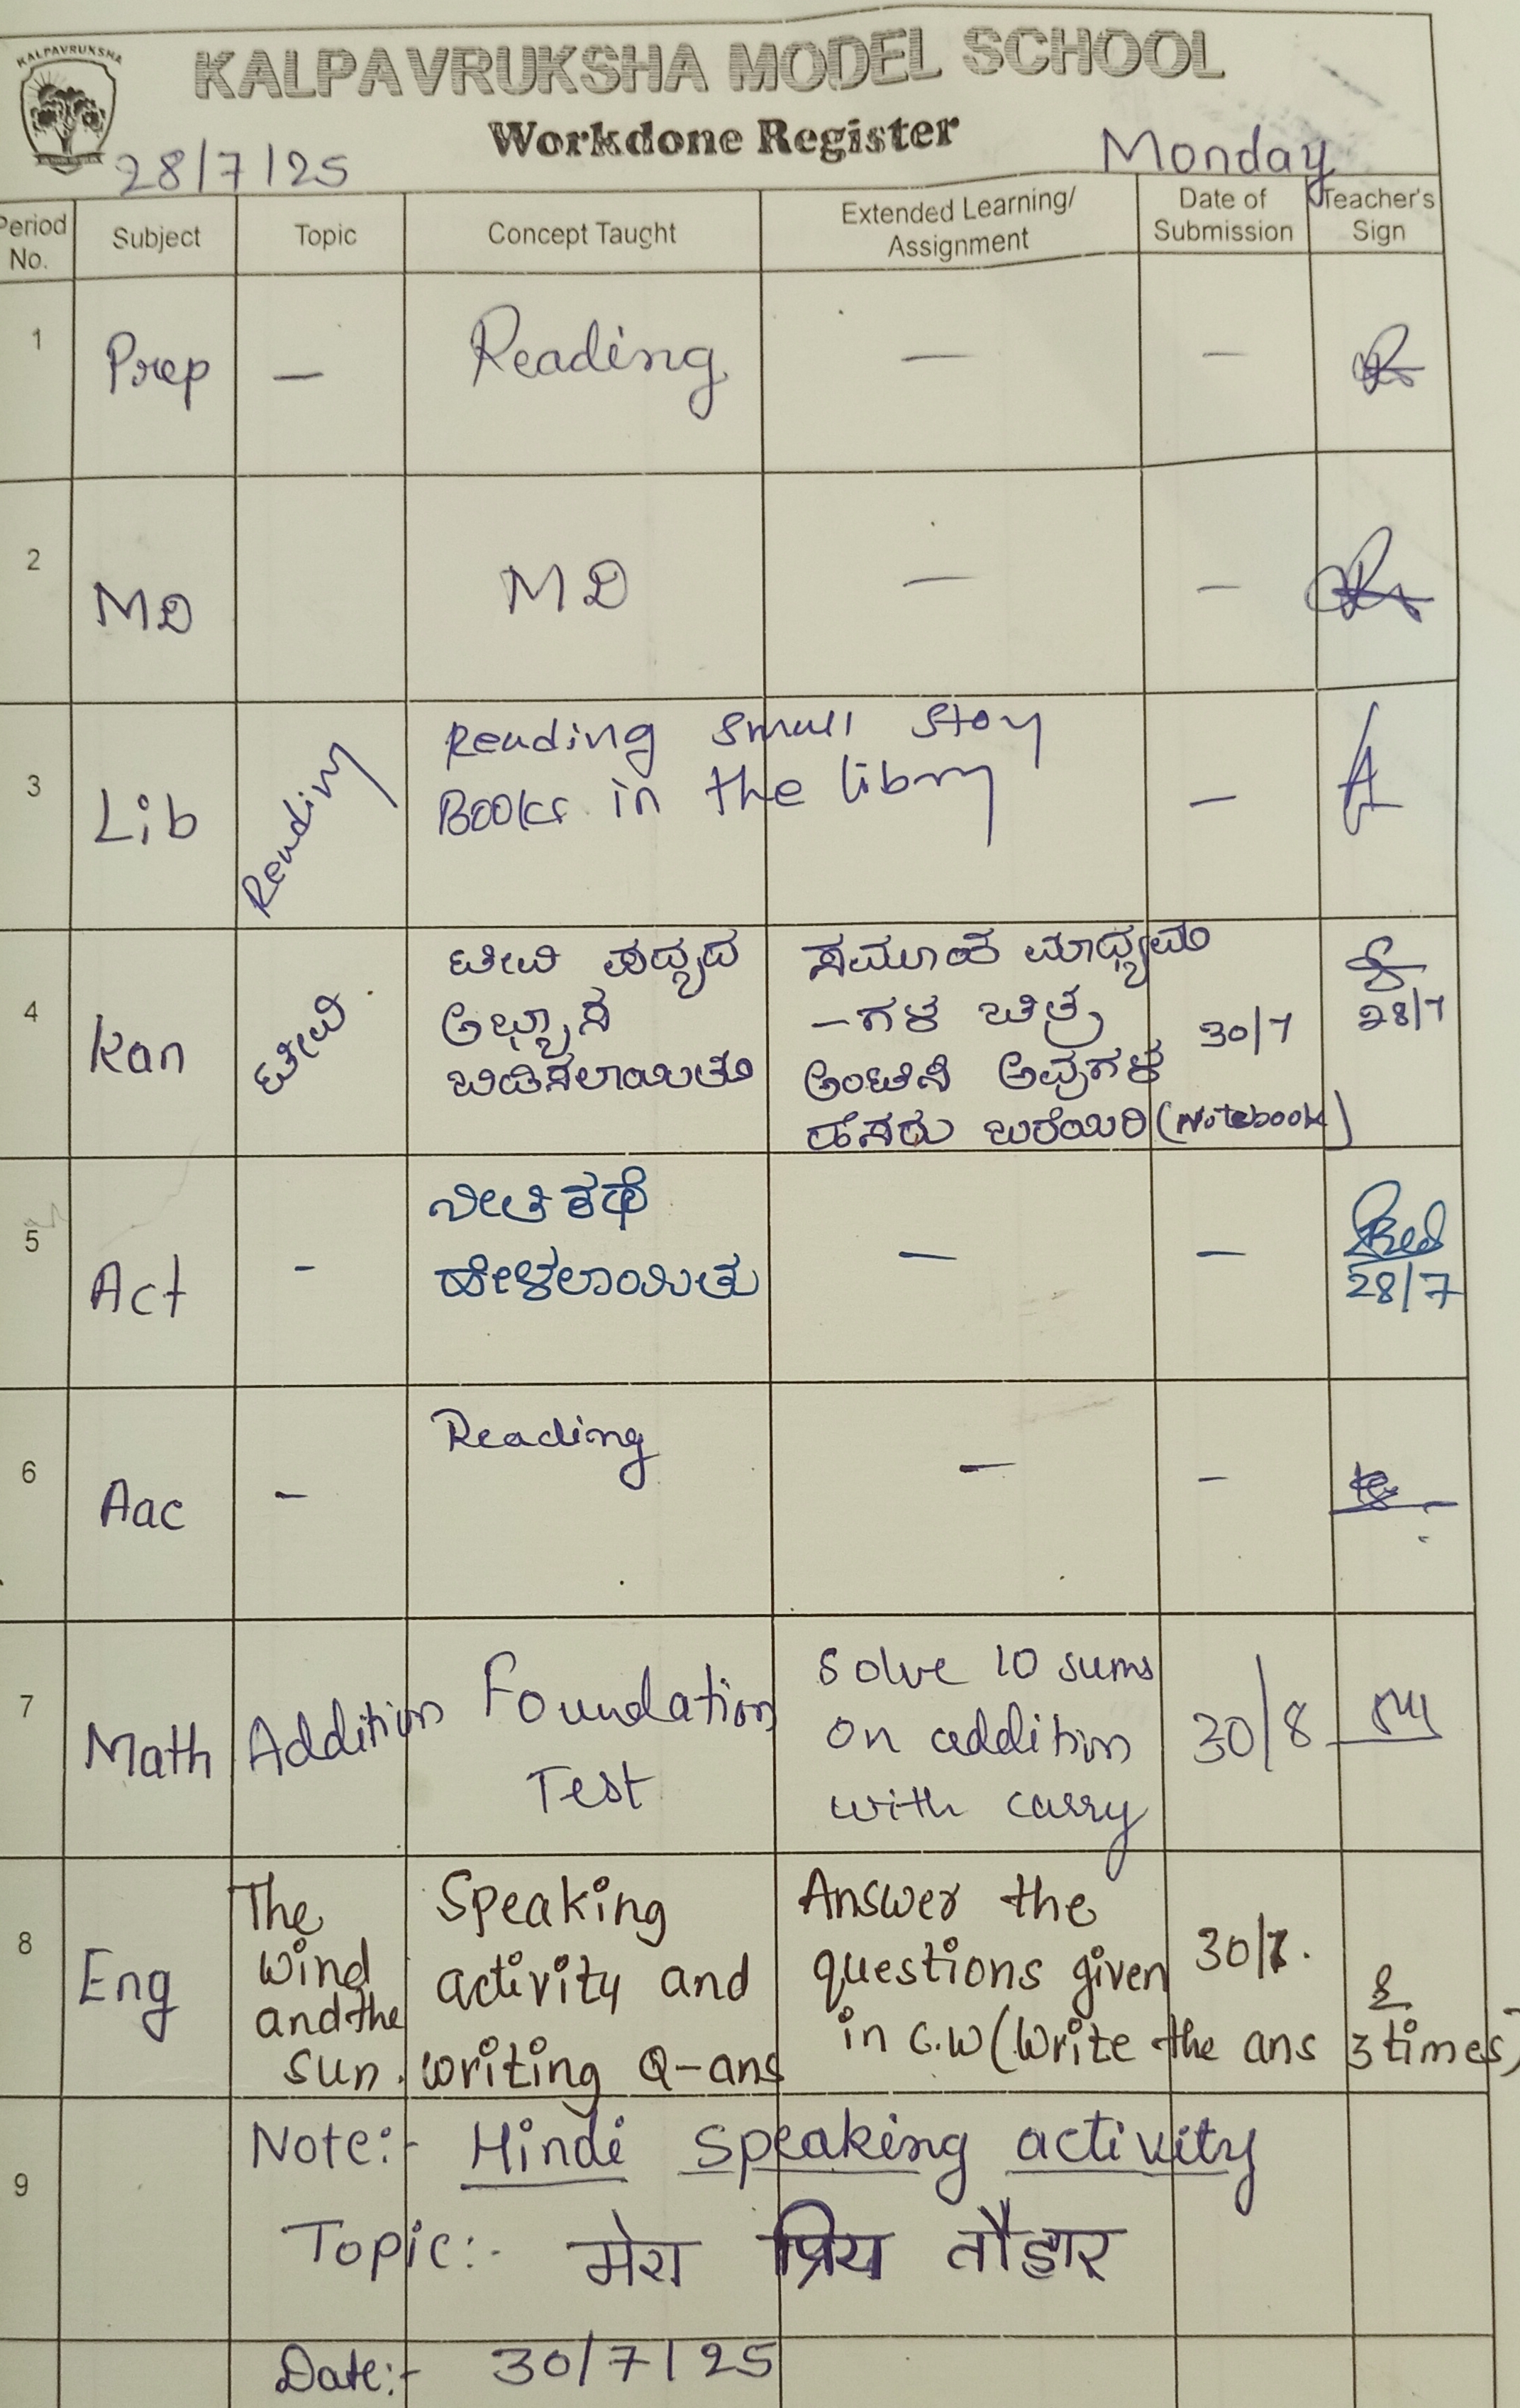 KALPAVRUKSHA
KALPAVRUKSHA MODEL SCHOOL
Workdone Register
28/7/25
Monday
Period No. Subject Topic Concept Taught Extended Learning/ Assignment Date of Submission Teacher's Sign
1 Prep – Reading – –
2 MD MD – –
3 Lib Reading Reading small stoy
Books in the libry –
4 Kan ಟೀವಿ ಟೀವಿ ಪದ್ಯದ
ಅಭ್ಯಾಸ
ಬಿಡಿಸಲಾಯಿತು
ಸಮೂಹ ಮಾಧ್ಯಮ
-ಗಳ ಚಿತ್ರ
ಅಂಟಿಸಿ ಅವುಗಳ
ಹೆಸರು ಬರೆಯಿರಿ (Notebook)
30/7
28/7
5 Act - ನೀತಿ ಕಥೆ
ಹೇಳಲಾಯಿತು
– –
28/7
6 Aac - Reading – -
7 Math Addition Foundation
Test
Solve 10 sums
on addition
with carry
30/8
8 Eng The
wind
and the
sun.
Speaking
activity and
writing Q-ans
Answer the
questions given
in C.W (Write the ans 3 times)
30/7.
9 Note:- Hindi speaking activity
Topic:- मेरा प्रिय तौहार
Date:- 30/7/25